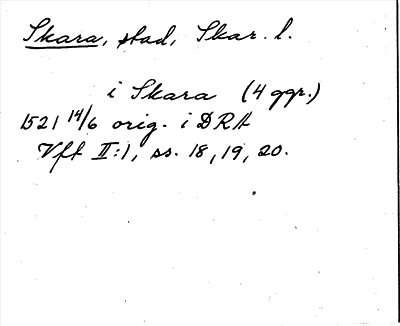 Skara, stad, Skar. l.
i Skara (4 ggr.)
1521 14/6 orig. i DRA
Vft II:1, ss. 18, 19, 20.